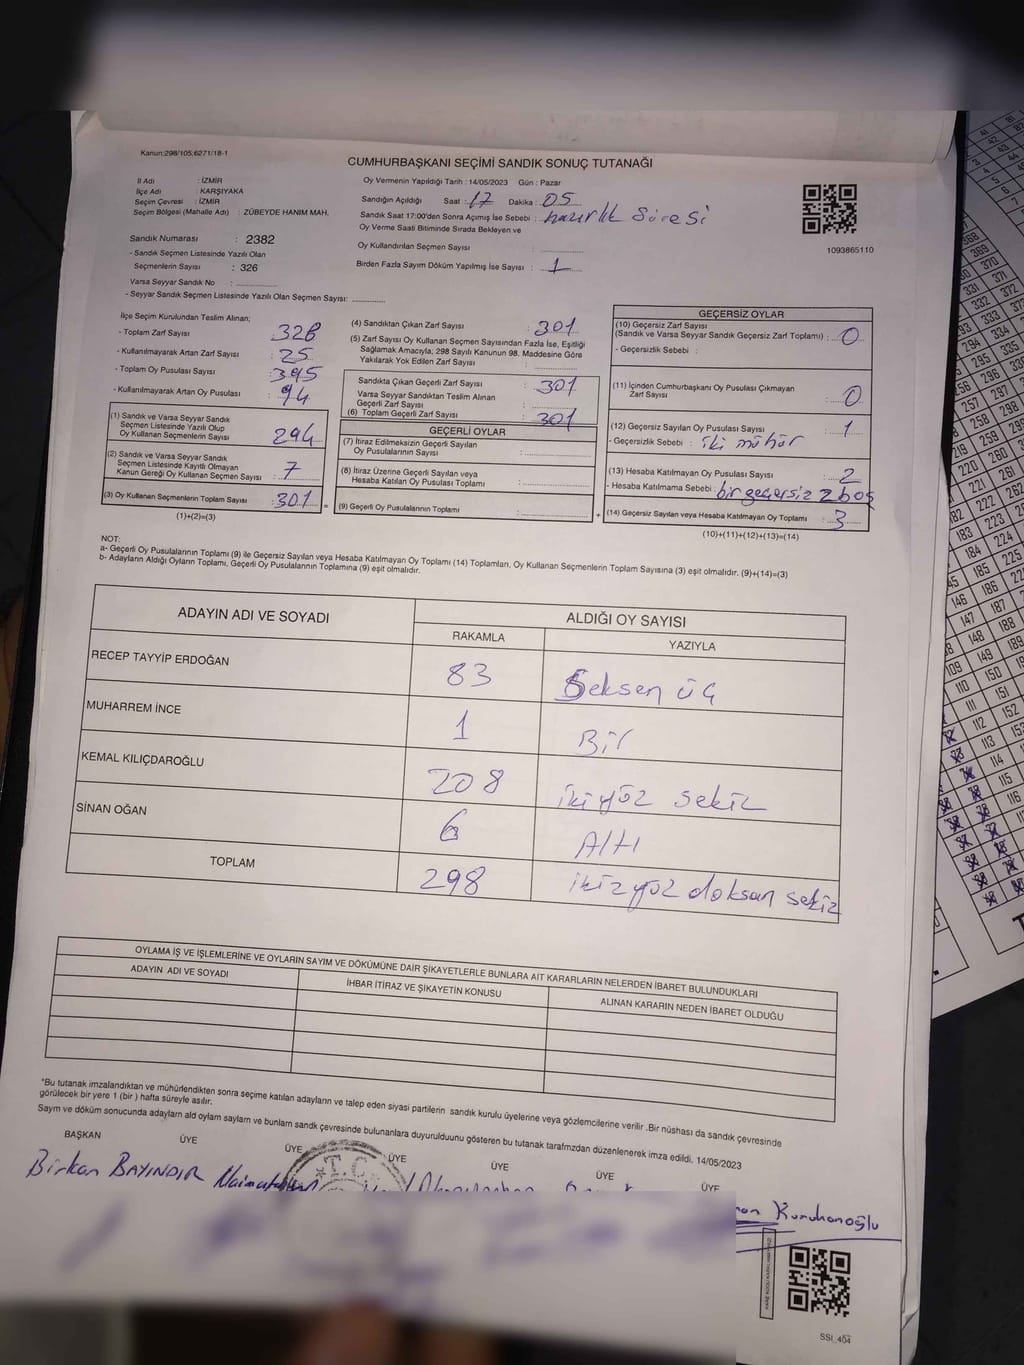 Kanun:298/105;6271/18-1
CUMHURBAŞKANI SEÇİMİ SANDIK SONUÇ TUTANAĞI
İl Adı : İZMİR
İlçe Adı : KARŞIYAKA
Seçim Çevresi : İZMİR
Seçim Bölgesi (Mahalle Adı) : ZÜBEYDE HANIM MAH.
Sandık Numarası : 2382
- Sandık Seçmen Listesinde Yazılı Olan
Seçmenlerin Sayısı : 326
Varsa Seyyar Sandık No :
- Seyyar Sandık Seçmen Listesinde Yazılı Olan Seçmen Sayısı:
Oy Vermenin Yapıldığı Tarih : 14/05/2023 Gün : Pazar
Sandığın Açıldığı Saat : 17 Dakika : 05
Sandık Saat 17:00'den Sonra Açılmış İse Sebebi : hazırlık Süresi
Oy Verme Saati Bitiminde Sırada Bekleyen ve
Oy Kullandırılan Seçmen Sayısı :
Birden Fazla Sayım Döküm Yapılmış İse Sayısı : 1
1093865110
İlçe Seçim Kurulundan Teslim Alınan;
- Toplam Zarf Sayısı : 326
- Kullanılmayarak Artan Zarf Sayısı : 25
- Toplam Oy Pusulası Sayısı : 395
- Kullanılmayarak Artan Oy Pusulası : 94
(1) Sandık ve Varsa Seyyar Sandık
Seçmen Listesinde Yazılı Olup
Oy Kullanan Seçmenlerin Sayısı : 294
(2) Sandık ve Varsa Seyyar Sandık
Seçmen Listesinde Kayıtlı Olmayan
Kanun Gereği Oy Kullanan Seçmen Sayısı : 7
(3) Oy Kullanan Seçmenlerin Toplam Sayısı : 301 =
(1)+(2)=(3)
(4) Sandıktan Çıkan Zarf Sayısı : 301
(5) Zarf Sayısı Oy Kullanan Seçmen Sayısından Fazla İse, Eşitliği
Sağlamak Amacıyla; 298 Sayılı Kanunun 98. Maddesine Göre
Yakılarak Yok Edilen Zarf Sayısı :
Sandıkta Çıkan Geçerli Zarf Sayısı : 301
Varsa Seyyar Sandıktan Teslim Alınan
Geçerli Zarf Sayısı :
(6) Toplam Geçerli Zarf Sayısı : 301
GEÇERLİ OYLAR
(7) İtiraz Edilmeksizin Geçerli Sayılan
Oy Pusulalarının Sayısı :
(8) İtiraz Üzerine Geçerli Sayılan veya
Hesaba Katılan Oy Pusulası Toplamı :
(9) Geçerli Oy Pusulalarının Toplamı : +
GEÇERSİZ OYLAR
(10) Geçersiz Zarf Sayısı
(Sandık ve Varsa Seyyar Sandık Geçersiz Zarf Toplamı) : 0
- Geçersizlik Sebebi :
(11) İçinden Cumhurbaşkanı Oy Pusulası Çıkmayan
Zarf Sayısı : 0
(12) Geçersiz Sayılan Oy Pusulası Sayısı : 1
- Geçersizlik Sebebi : iki mühür
(13) Hesaba Katılmayan Oy Pusulası Sayısı : 2
- Hesaba Katılmama Sebebi : bir geçersiz 2 boş
(14) Geçersiz Sayılan veya Hesaba Katılmayan Oy Toplamı : 3
(10)+(11)+(12)+(13)=(14)
NOT:
a- Geçerli Oy Pusulalarının Toplamı (9) ile Geçersiz Sayılan veya Hesaba Katılmayan Oy Toplamı (14) Toplamları, Oy Kullanan Seçmenlerin Toplam Sayısına (3) eşit olmalıdır. (9)+(14)=(3)
b- Adayların Aldığı Oyların Toplamı, Geçerli Oy Pusulalarının Toplamına (9) eşit olmalıdır.
ADAYIN ADI VE SOYADI ALDIĞI OY SAYISI
RAKAMLA YAZIYLA
RECEP TAYYİP ERDOĞAN 83 Seksen üç
MUHARREM İNCE 1 Bir
KEMAL KILIÇDAROĞLU 208 ikiyüz sekiz
SİNAN OĞAN 6 Altı
TOPLAM 298 ikizyüz doksan sekiz
OYLAMA İŞ VE İŞLEMLERİNE VE OYLARIN SAYIM VE DÖKÜMÜNE DAİR ŞİKAYETLERLE BUNLARA AİT KARARLARIN NELERDEN İBARET BULUNDUKLARI
ADAYIN ADI VE SOYADI İHBAR İTİRAZ VE ŞİKAYETİN KONUSU ALINAN KARARIN NEDEN İBARET OLDUĞU
*Bu tutanak imzalandıktan ve mühürlendikten sonra seçime katılan adayların ve talep eden siyasi partilerin sandık kurulu üyelerine veya gözlemcilerine verilir .Bir nüshası da sandık çevresinde
görülecek bir yere 1 (bir ) hafta süreyle asılır.
Saym ve döküm sonucunda adayların ald oylam saylarn ve bunlarn sandk çevresinde bulunanlara duyurulduunu gösteren bu tutanak tarafmzdan düzenlenerek imza edildi. 14/05/2023
BAŞKAN ÜYE ÜYE ÜYE ÜYE ÜYE ÜYE
Birkan BAYINDIR
T.C.
Kuruhanoğlu
SSİ_404